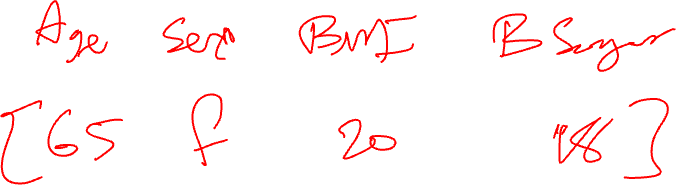 Age Sex BMI B Sugar
[65 f 20 98]